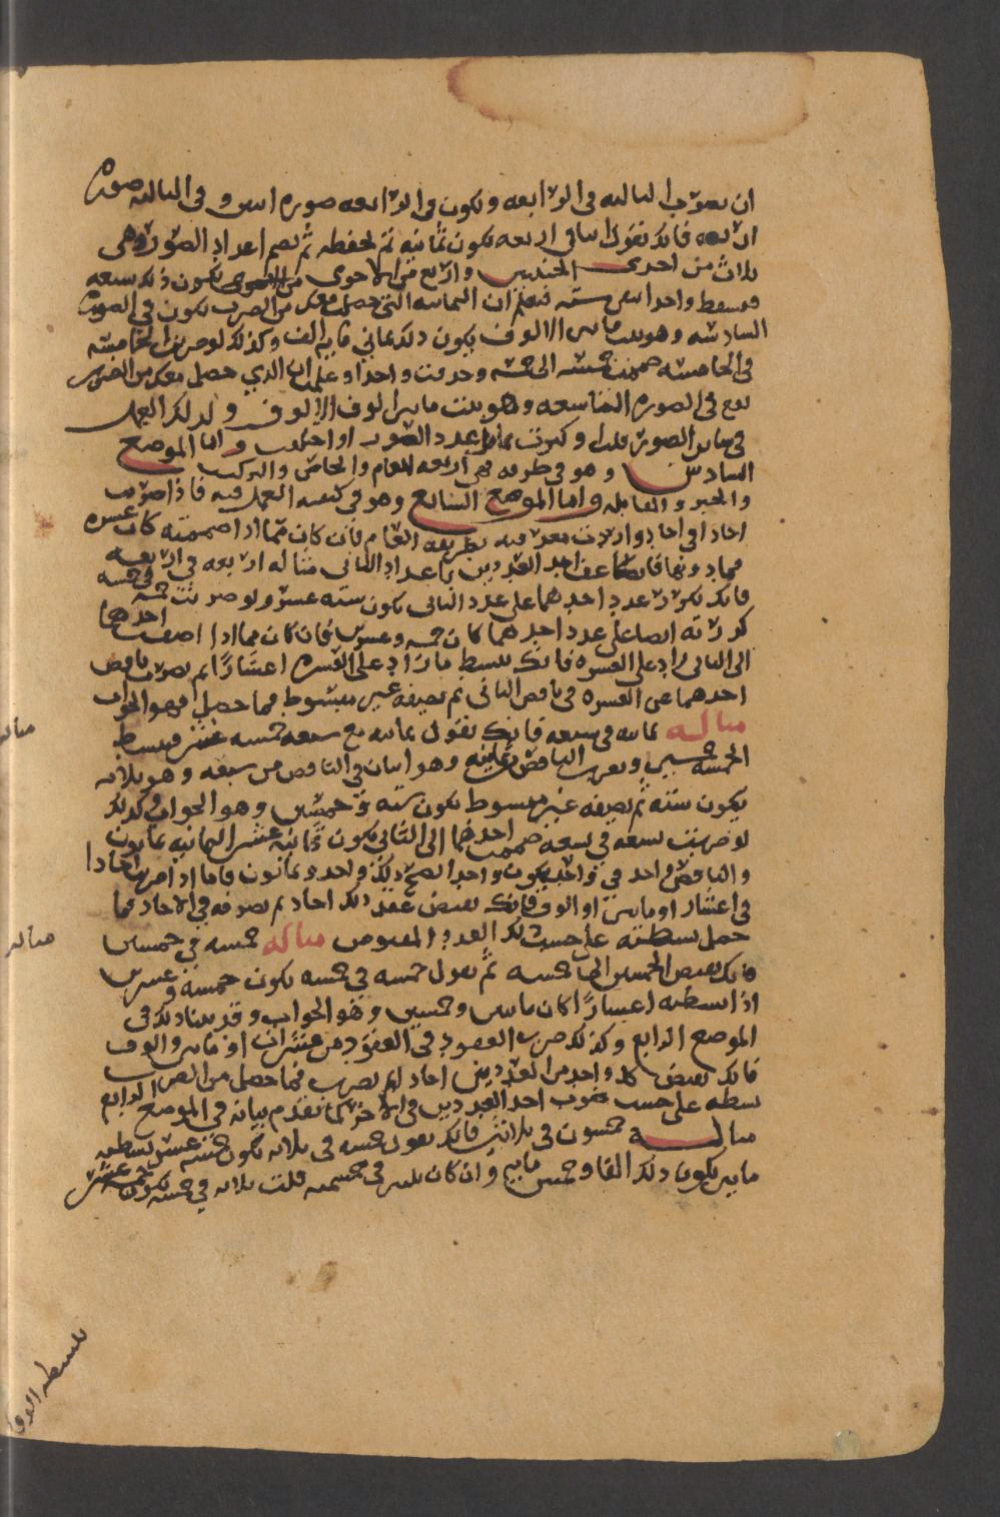 ان تضرب الثالثه في الرابعه ويكون في الرابعه صوره اثنين وفي الثالثه صوره
اربعه فانك تقول اثنان في اربعه يكون ثمانيه ثم تحفظه ثم تضم اعداد الصور وهي
ثلاث من احدى الجنبتين واربع من الاخرى يكون ذلك سبعه
فتسقط واحدا تبقى سته فتعلم ان الثمانيه التي حصلت معك من الضرب تكون في الصوره
السادسه وهو بيت مايين الالوف يكون ذلك ثماني مايه الف وكذلك لو ضربت الخامسه
في الخامسه ضممت خمسه الى خمسه وحذفت واحدا وعلمت ان الذي حصل معك من الضرب
يقع في الصوره التاسعه وهو بيت مايين الوف الالوف وكذلك العمل
في ساير الصور قلت او كثرت تماثل عدد الصور او اختلف واما الموضع
السادس وهو في طرقه فهي اربعه العام والخاص والتركيب
والجبر والمقابله واما الموضع السابع وهو في كيفيه العمل فيه فاذا ضربت
احادا في احاد واردت معرفه بطريقه العام فان كان مما اذا ضممته كان عشره
فما دونها فانك تضاعف احد العددين باعداد الثاني مثاله اربعه في اربعه
فانك تكرر عدد احدهما على عدد الثاني يكون سته عشر ولو ضربت خمسه في خمسه
كررته ايضا على عدد احدهما كان خمسه وعشرين فان كان مما اذا اضفت احدهما
الى الثاني زاد على العشره فانك تبسط ما زاد على العشره اعشارا ثم تضرب ناقص
احدهما عن العشره في ناقص الثاني ثم تضيفه غير مبسوط فما حصل فهو الجواب
مثاله ثمانيه في سبعه فانك تقول ثمانيه مع سبعه خمسه عشر فتبسط
الخمسه خمسين وتضرب الناقص من ثمانيه وهو اثنان في الناقص من سبعه وهو ثلاثه
يكون سته ثم تضيفه غير مبسوط يكون سته وخمسين وهو الجواب وكذلك
لو ضربت تسعه في تسعه ضممت احدهما الى الثاني يكون ثمانيه عشر الثمانيه ثمانون
والناقص واحد في واحد يكون واحدا يصح ذلك واحد وثمانون فاما اذا ضربت احادا
في اعشار او مايين او الوف فانك تقبض عقد ذلك احاد ثم تضربه في الاحاد فما
حصل بسطته على حسب ذلك العدد المقبوض مثاله خمسه في خمسين
فانك تقبض الخمسين الى خمسه ثم تقول خمسه في خمسه يكون خمسه وعشرين
اذا بسطته اعشارا كان مايتين وخمسين وهو الجواب وقد بينا ذلك في
الموضع الرابع وكذلك ضرب العقود في العقود من عشرات او مايين والوف
فانك تقبض كل واحد من العددين احاد ثم تضرب فما حصل من الضرب
بسطه على حسب ضرب احد العددين في الاخر كما تقدم بيانه في الموضع الرابع
مثاله خمسون في ثلاثين فانك تقول خمسه في ثلاثه تكون خمسه عشر تبسطه
مايين يكون ذلك الفا وخمس مايه وان كان ثلاثين في خمسمايه قلت ثلاثه في خمسه يكون خمسه عشر
مثاله
مثاله
تبسطه الوف